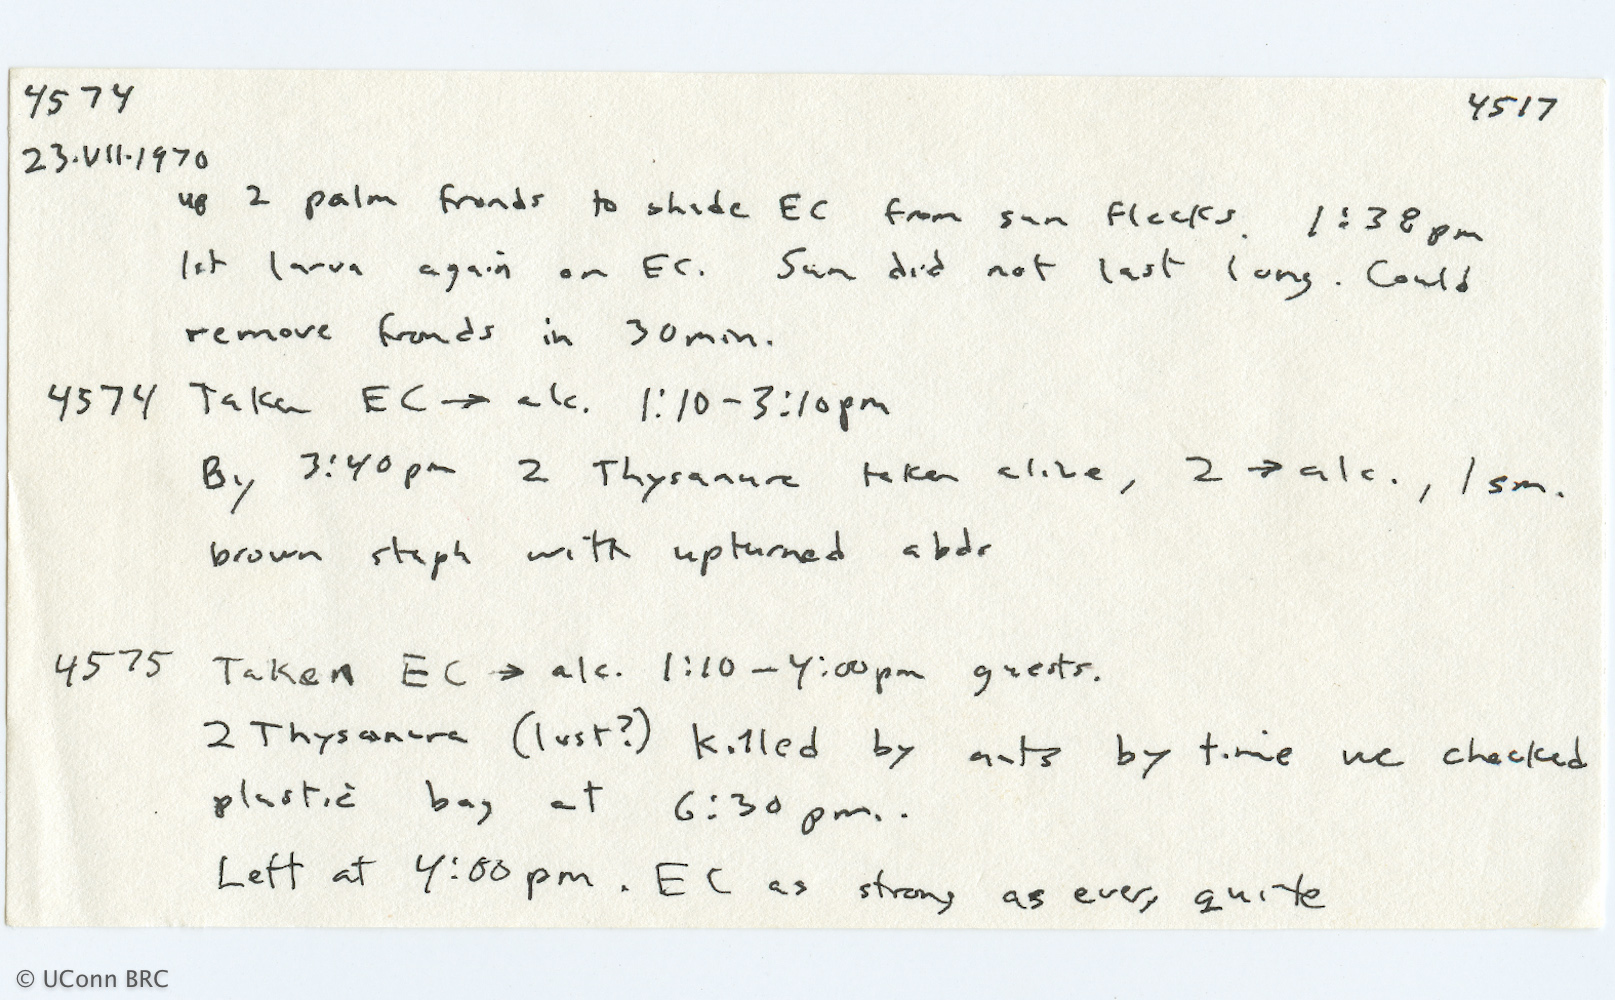 4574 4517
23.VII.1970
up 2 palm fronds to shade EC from sun flecks. 1:38pm
1st larva again on EC. Sun did not last long. Could
remove fronds in 30min.
4574 Taken EC → alc. 1:10-3:10pm
By 3:40pm 2 Thysanura taken alive, 2 → alc., 1 sm.
brown staph with upturned abd
4575 Taken EC → alc. 1:10-4:00pm guests.
2 Thysanura (lust?) Killed by ants by time we checked
plastic bag at 6:30 pm..
Left at 4:00pm. EC as strong as ever, quite
© UConn BRC